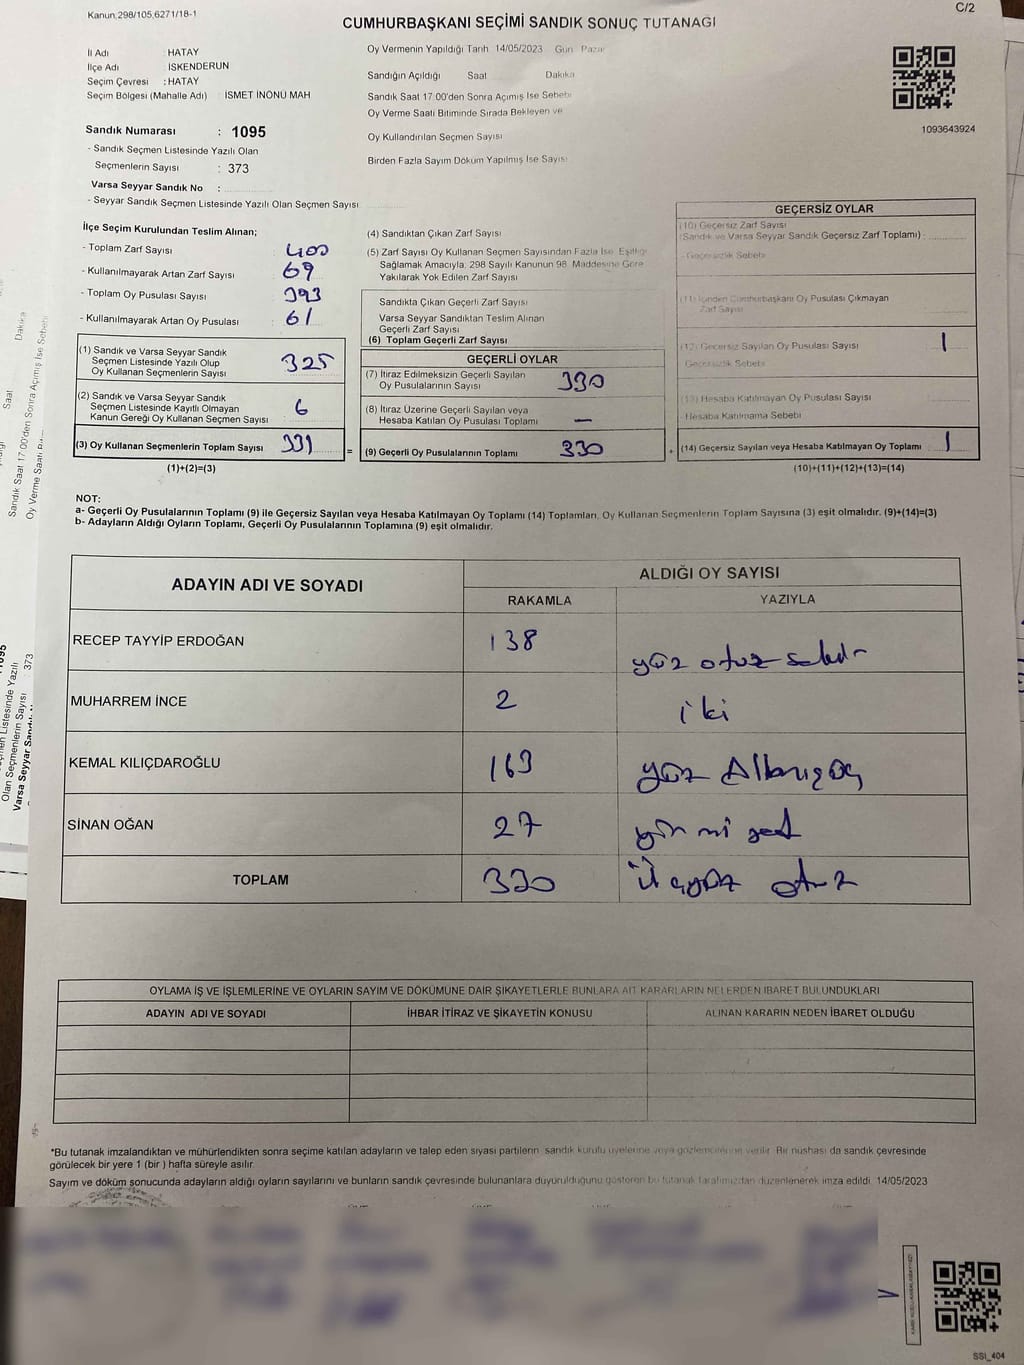 Kanun,298/105,6271/18-1
C/2
CUMHURBAŞKANI SEÇİMİ SANDIK SONUÇ TUTANAĞI
İl Adı : HATAY
İlçe Adı : İSKENDERUN
Seçim Çevresi : HATAY
Seçim Bölgesi (Mahalle Adı) : İSMET İNÖNÜ MAH
Oy Vermenin Yapıldığı Tarih 14/05/2023 Gün Pazar
Sandığın Açıldığı Saat Dakika
Sandık Saat 17:00'den Sonra Açımış İse Sebebi
Oy Verme Saati Bitiminde Sırada Bekleyen ve
Oy Kullandırılan Seçmen Sayısı
Birden Fazla Sayım Döküm Yapılmış İse Sayısı
1093643924
Sandık Numarası : 1095
- Sandık Seçmen Listesinde Yazılı Olan
Seçmenlerin Sayısı : 373
Varsa Seyyar Sandık No :
- Seyyar Sandık Seçmen Listesinde Yazılı Olan Seçmen Sayısı
İlçe Seçim Kurulundan Teslim Alınan;
- Toplam Zarf Sayısı : 400
- Kullanılmayarak Artan Zarf Sayısı : 69
- Toplam Oy Pusulası Sayısı : 393
- Kullanılmayarak Artan Oy Pusulası : 61
(1) Sandık ve Varsa Seyyar Sandık
Seçmen Listesinde Yazılı Olup
Oy Kullanan Seçmenlerin Sayısı 325
(2) Sandık ve Varsa Seyyar Sandık
Seçmen Listesinde Kayıtlı Olmayan
Kanun Gereği Oy Kullanan Seçmen Sayısı 6
(3) Oy Kullanan Seçmenlerin Toplam Sayısı 331
(1)+(2)=(3)
(4) Sandıktan Çıkan Zarf Sayısı
(5) Zarf Sayısı Oy Kullanan Seçmen Sayısından Fazla İse, Eşitliği
Sağlamak Amacıyla; 298 Sayılı Kanunun 98. Maddesine Göre
Yakılarak Yok Edilen Zarf Sayısı
Sandıkta Çıkan Geçerli Zarf Sayısı
Varsa Seyyar Sandıktan Teslim Alınan
Geçerli Zarf Sayısı
(6) Toplam Geçerli Zarf Sayısı
GEÇERLİ OYLAR
(7) İtiraz Edilmeksizin Geçerli Sayılan
Oy Pusulalarının Sayısı 330
(8) İtiraz Üzerine Geçerli Sayılan veya
Hesaba Katılan Oy Pusulası Toplamı —
= (9) Geçerli Oy Pusulalarının Toplamı 330
GEÇERSİZ OYLAR
(10) Geçersiz Zarf Sayısı
(Sandık ve Varsa Seyyar Sandık Geçersiz Zarf Toplamı) :
- Geçersizlik Sebebi
Cumhurbaşkanı Oy Pusulası Çıkmayan
Zarf Sayısı
(12) Geçersiz Sayılan Oy Pusulası Sayısı 1
Geçersizlik Sebebi
(13) Hesaba Katılmayan Oy Pusulası Sayısı
- Hesaba Katılmama Sebebi
+ (14) Geçersiz Sayılan veya Hesaba Katılmayan Oy Toplamı 1
(10)+(11)+(12)+(13)=(14)
NOT:
a- Geçerli Oy Pusulalarının Toplamı (9) ile Geçersiz Sayılan veya Hesaba Katılmayan Oy Toplamı (14) Toplamları, Oy Kullanan Seçmenlerin Toplam Sayısına (3) eşit olmalıdır. (9)+(14)=(3)
b- Adayların Aldığı Oyların Toplamı, Geçerli Oy Pusulalarının Toplamına (9) eşit olmalıdır.
ADAYIN ADI VE SOYADI
ALDIĞI OY SAYISI
RAKAMLA YAZIYLA
RECEP TAYYİP ERDOĞAN 138 yüz otuz sekiz
MUHARREM İNCE 2 iki
KEMAL KILIÇDAROĞLU 163 yüz Altmışüç
SİNAN OĞAN 27 yirmi yedi
TOPLAM 330 Üçyüz otuz
OYLAMA İŞ VE İŞLEMLERİNE VE OYLARIN SAYIM VE DÖKÜMÜNE DAİR ŞİKAYETLERLE BUNLARA AİT KARARLARIN NELERDEN İBARET BULUNDUKLARI
ADAYIN ADI VE SOYADI İHBAR İTİRAZ VE ŞİKAYETİN KONUSU ALINAN KARARIN NEDEN İBARET OLDUĞU
*Bu tutanak imzalandıktan ve mühürlendikten sonra seçime katılan adayların ve talep eden siyasi partilerin sandık kurulu üyelerine veya gözlemcilerine verilir. Bir nüshası da sandık çevresinde
görülecek bir yere 1 (bir ) hafta süreyle asılır.
Sayım ve döküm sonucunda adayların aldığı oyların sayılarını ve bunların sandık çevresinde bulunanlara duyurulduğunu gösteren bu tutanak tarafımızdan düzenlenerek imza edildi. 14/05/2023
SSI_404